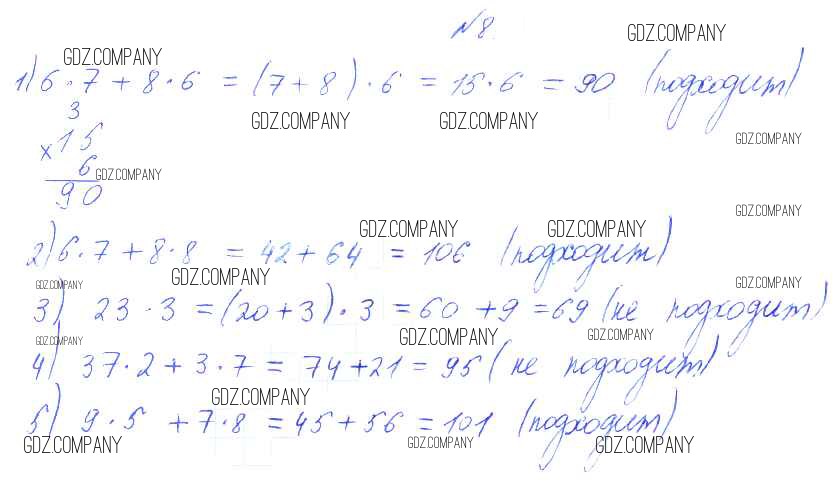 №8.
GDZ.COMPANY GDZ.COMPANY
1) 6·7 + 8·6 = (7+8)·6 = 15·6 = 90 (подходит)
3 GDZ.COMPANY GDZ.COMPANY
×15 GDZ.COMPANY
6 GDZ.COMPANY
90 GDZ.COMPANY
GDZ.COMPANY GDZ.COMPANY
2) 6·7 + 8·8 = 42 + 64 = 106 (подходит)
GDZ.COMPANY GDZ.COMPANY GDZ.COMPANY
3) 23·3 = (20+3)·3 = 60 + 9 = 69 (не подходит)
GDZ.COMPANY GDZ.COMPANY GDZ.COMPANY
4) 37·2 + 3·7 = 74 + 21 = 95 (не подходит)
GDZ.COMPANY
5) 9·5 + 7·8 = 45 + 56 = 101 (подходит)
GDZ.COMPANY GDZ.COMPANY GDZ.COMPANY